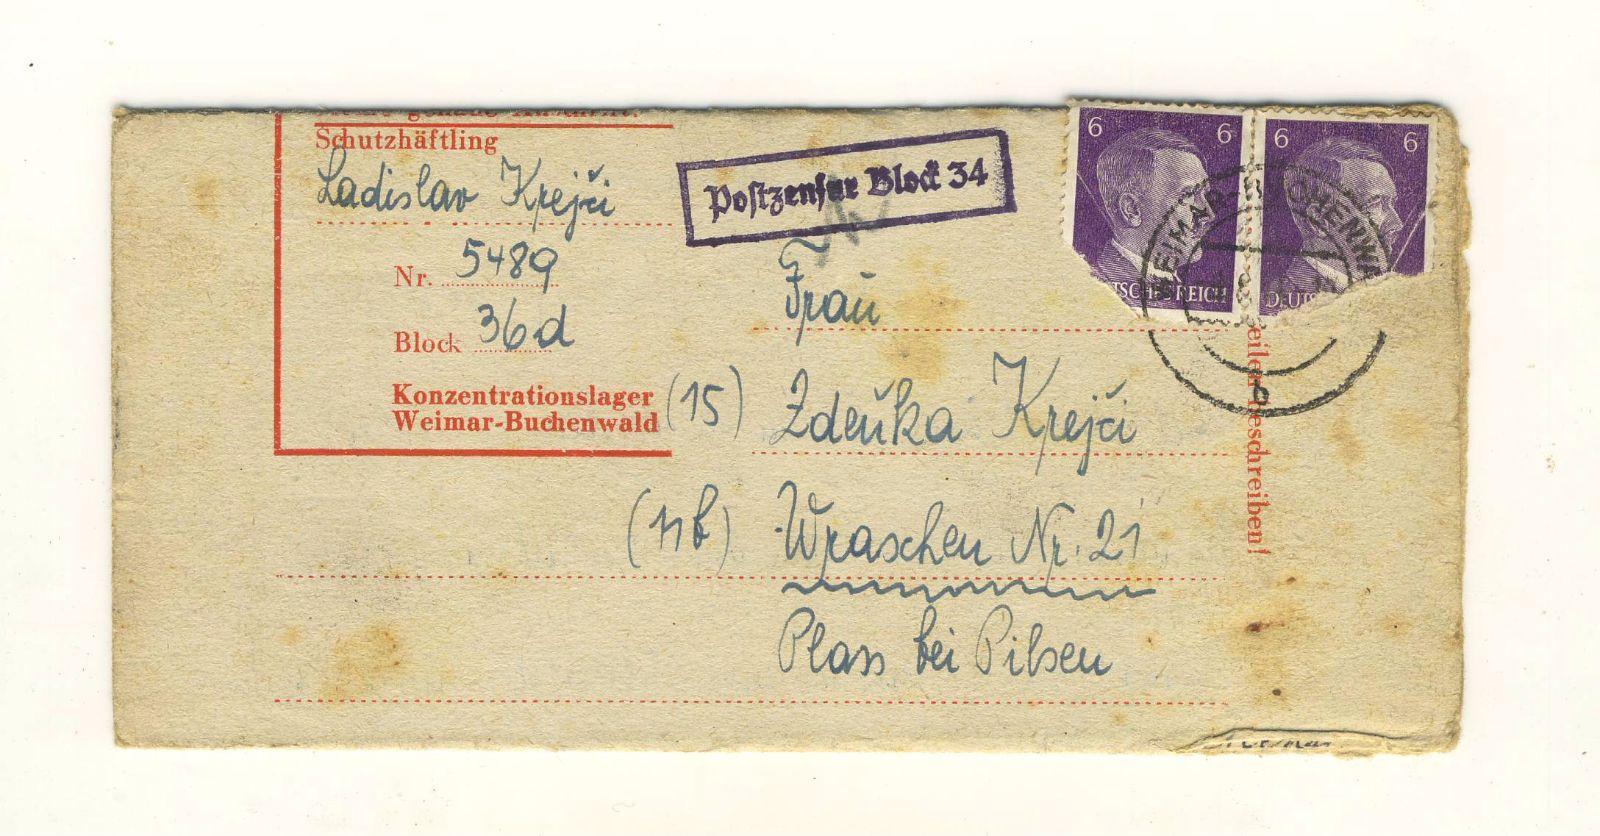 Schutzhäftling
Ladislav Krejči
Nr. 5489
Block 36d
Konzentrationslager
Weimar-Buchenwald
Postzensur Block 34
6 6
6 6
REICH
WEIMAR-BUCHENWA
b
Frau
(15) Zdeňka Krejči
(11b) Wraschen Nr. 21
Plass bei Pilsen
beschreiben!